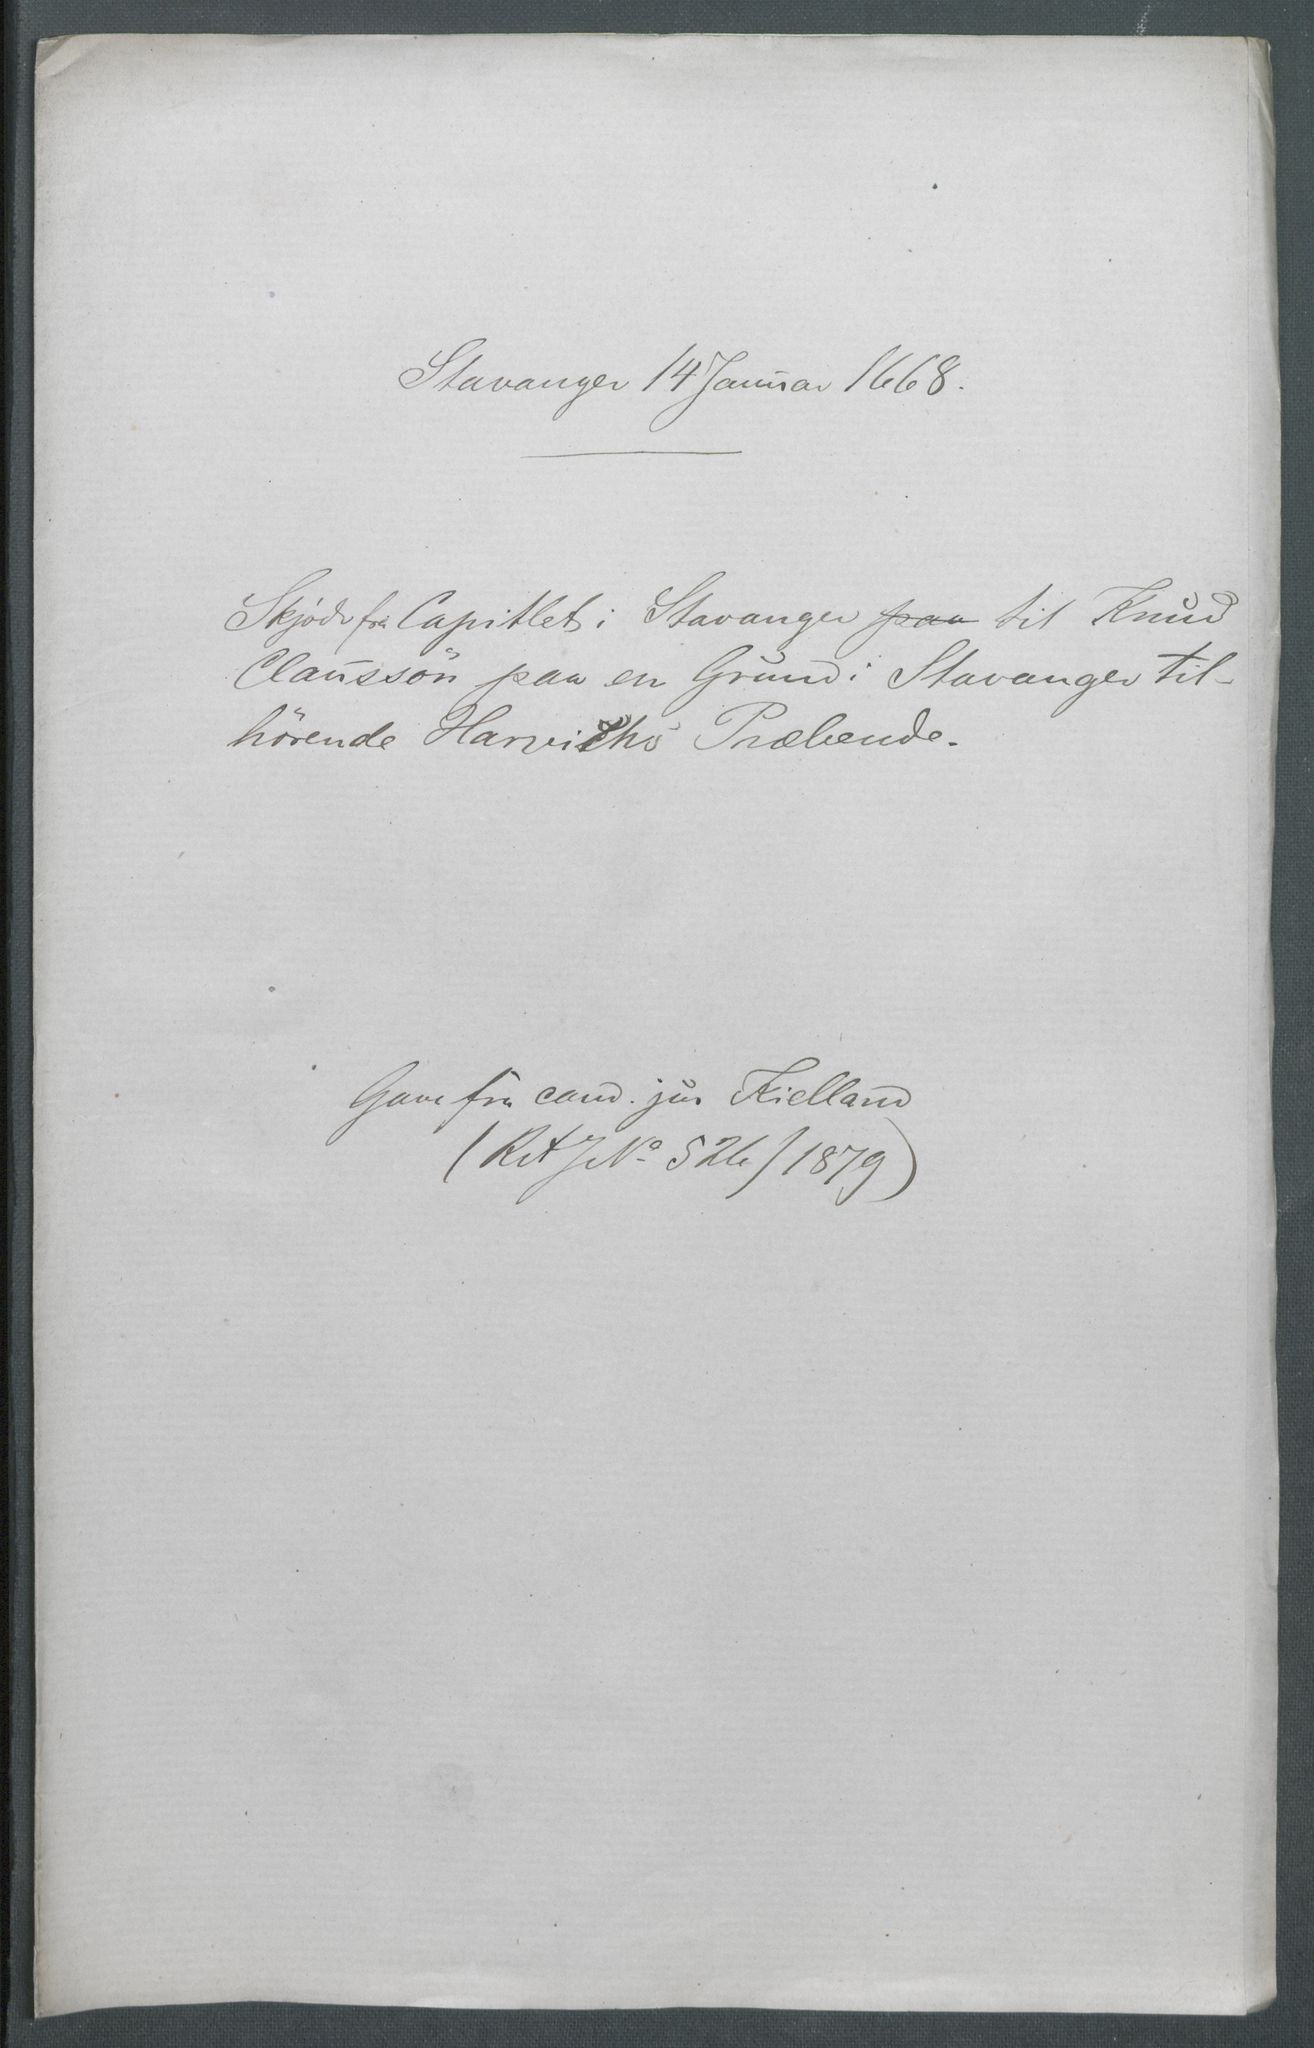 Stavanger 14 Januar 1668.
Skjöde fra Capitlet i Stavanger paa til Knud
Claussön paa en Grund i Stavanger til-
hörende Præbende.
Gave fra cand. jur Kielland
(RA JNo 526/1879)